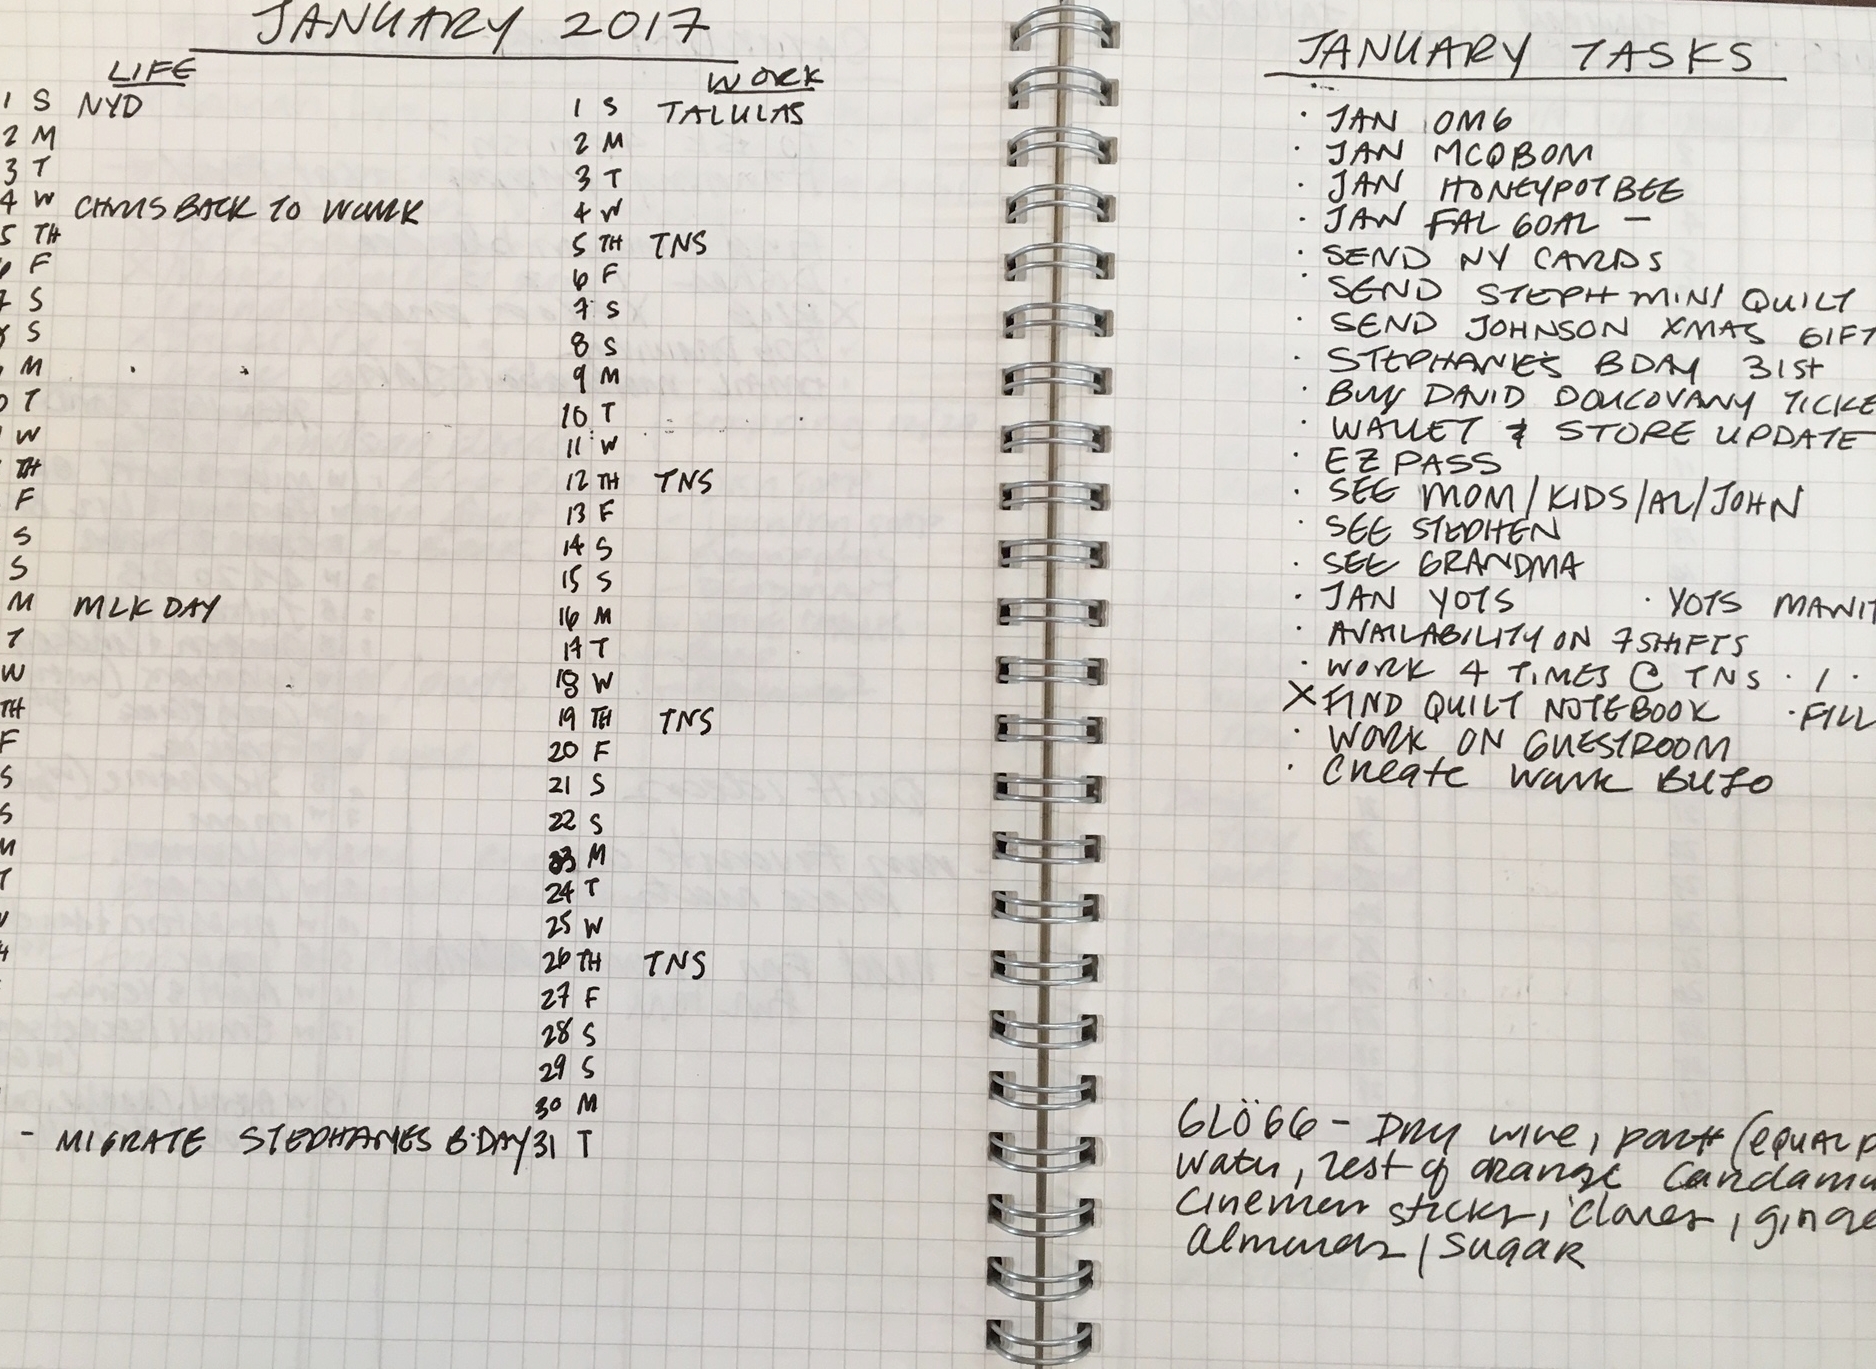 JANUARY 2017
LIFE
WORK
1 S NYD
2 M
3 T
4 W CHRIS BACK TO WORK
5 TH
6 F
7 S
8 S
M
T
W
TH
F
S
S
M MLK DAY
T
W
TH
F
S
S
M
T
- MIGRATE STEPHANIES B·DAY
1 S TALULAS
2 M
3 T
4 W
5 TH TNS
6 F
7 S
8 S
9 M
10 T
11 W
12 TH TNS
13 F
14 S
15 S
16 M
17 T
18 W
19 TH TNS
20 F
21 S
22 S
23 M
24 T
25 W
26 TH TNS
27 F
28 S
29 S
30 M
31 T
JANUARY TASKS
· JAN OMG
· JAN MCQBOM
· JAN HONEYPOTBEE
· JAN FAL GOAL –
· SEND NY CARDS
· SEND STEPH MINI QUILT
· SEND JOHNSON XMAS GIFT
· STEPHANIE'S BDAY 31st
· BUY DAVID DOUCOVANY TICKE
· WALLET & STORE UPDATE
· EZ PASS
· SEE MOM/KIDS/AL/JOHN
· SEE STEPHEN
· SEE GRANDMA
· JAN YOTS · YOTS
· AVAILABILITY ON 7SHIFTS
· WORK 4 TIMES @ TNS · 1 ·
X FIND QUILT NOTEBOOK · FILL
· WORK ON GUESTROOM
· Create Work BUJO
GLÖGG - Dry wine, port (EQUAL P
Water, zest of orange Cardamo
Cinemon sticks, cloves, ginge
almonds / SUGAR